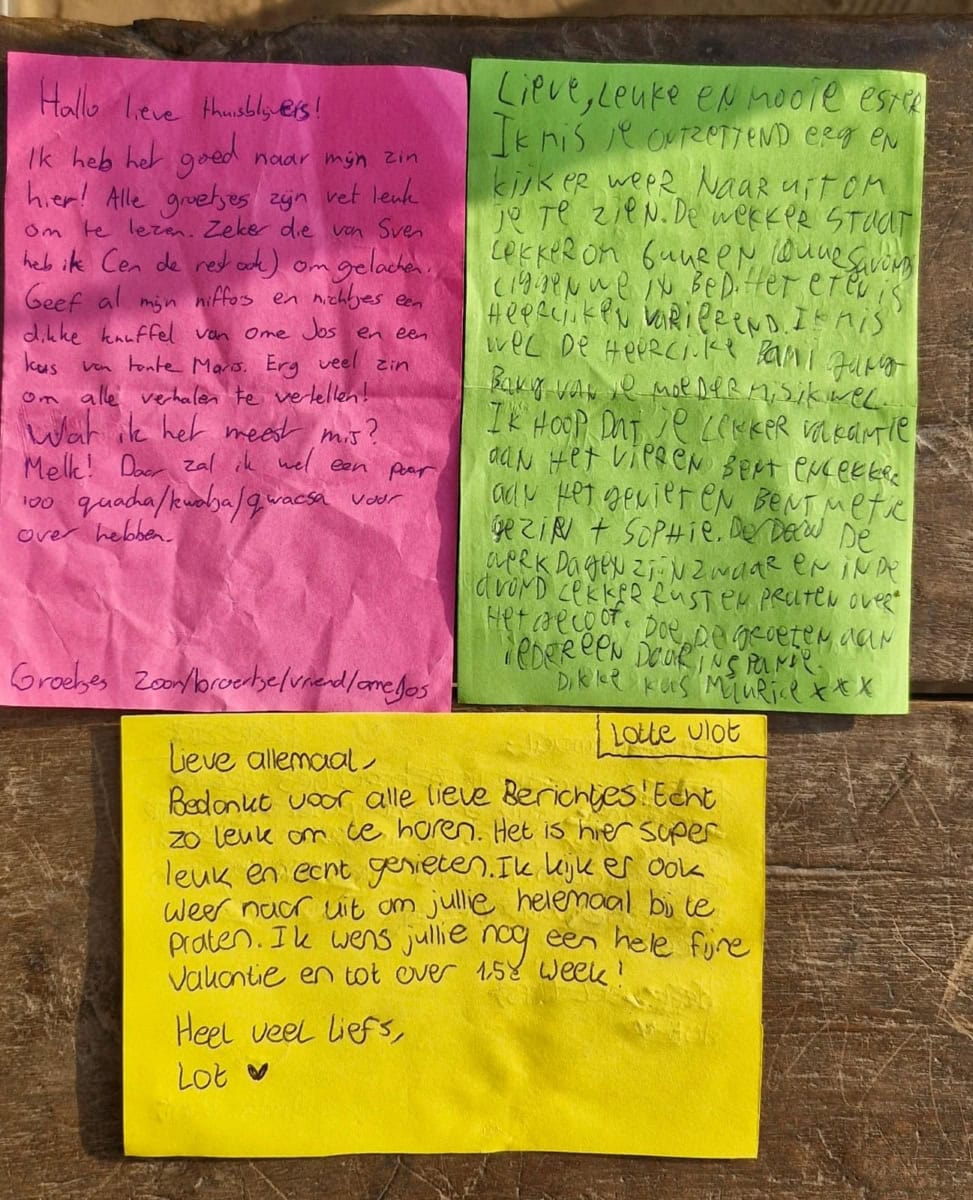 Hallo lieve thuisblijvers!
Ik heb het goed naar mijn zin
hier! Alle groetjes zijn vet leuk
om te lezen. Zeker die van Sven
heb ik (en de rest ook) om gelachen.
Geef al mijn niffos en nichtjes een
dikke knuffel van ome Jos en een
kus van tante Maris. Erg veel zin
om alle verhalen te vertellen!
Wat ik het meest mis?
Melk! Daar zal ik wel een paar
100 quacha/kwatja/qwacsa voor
over hebben.
Groetjes Zoon/broertje/vriend/ome Jos
Lieve, Leuke en mooie ester
Ik mis je ontzettend erg en
kijk er weer naar uit om
je te zien. De wekker staat
lekker om 6uur en 10uur savond
liggen we in bed. Het eten is
heerlijk en varierend. Ik mis
wel de heerlijke Bami gang
Bang van je moeder mis ik wel.
Ik hoop dat je lekker vakantie
aan het vieren bent en lekker
aan het genieten bent met je
gezin + Sophie. De
werkdagen zijn zwaar en in de
avond lekker rusten praten over
het geloof. Doe de groeten aan
iedereen daar in Spanje.
Dikke kus Maurice xxx
Lotte Vlot
Lieve allemaal,
Bedankt voor alle lieve Berichtjes! Echt
zo leuk om te horen. Het is hier super
leuk en echt genieten. Ik kijk er ook
weer naar uit om jullie helemaal bij te
praten. Ik wens jullie nog een hele fijne
vakantie en tot over 1,5e week!
Heel veel liefs,
Lot ♥